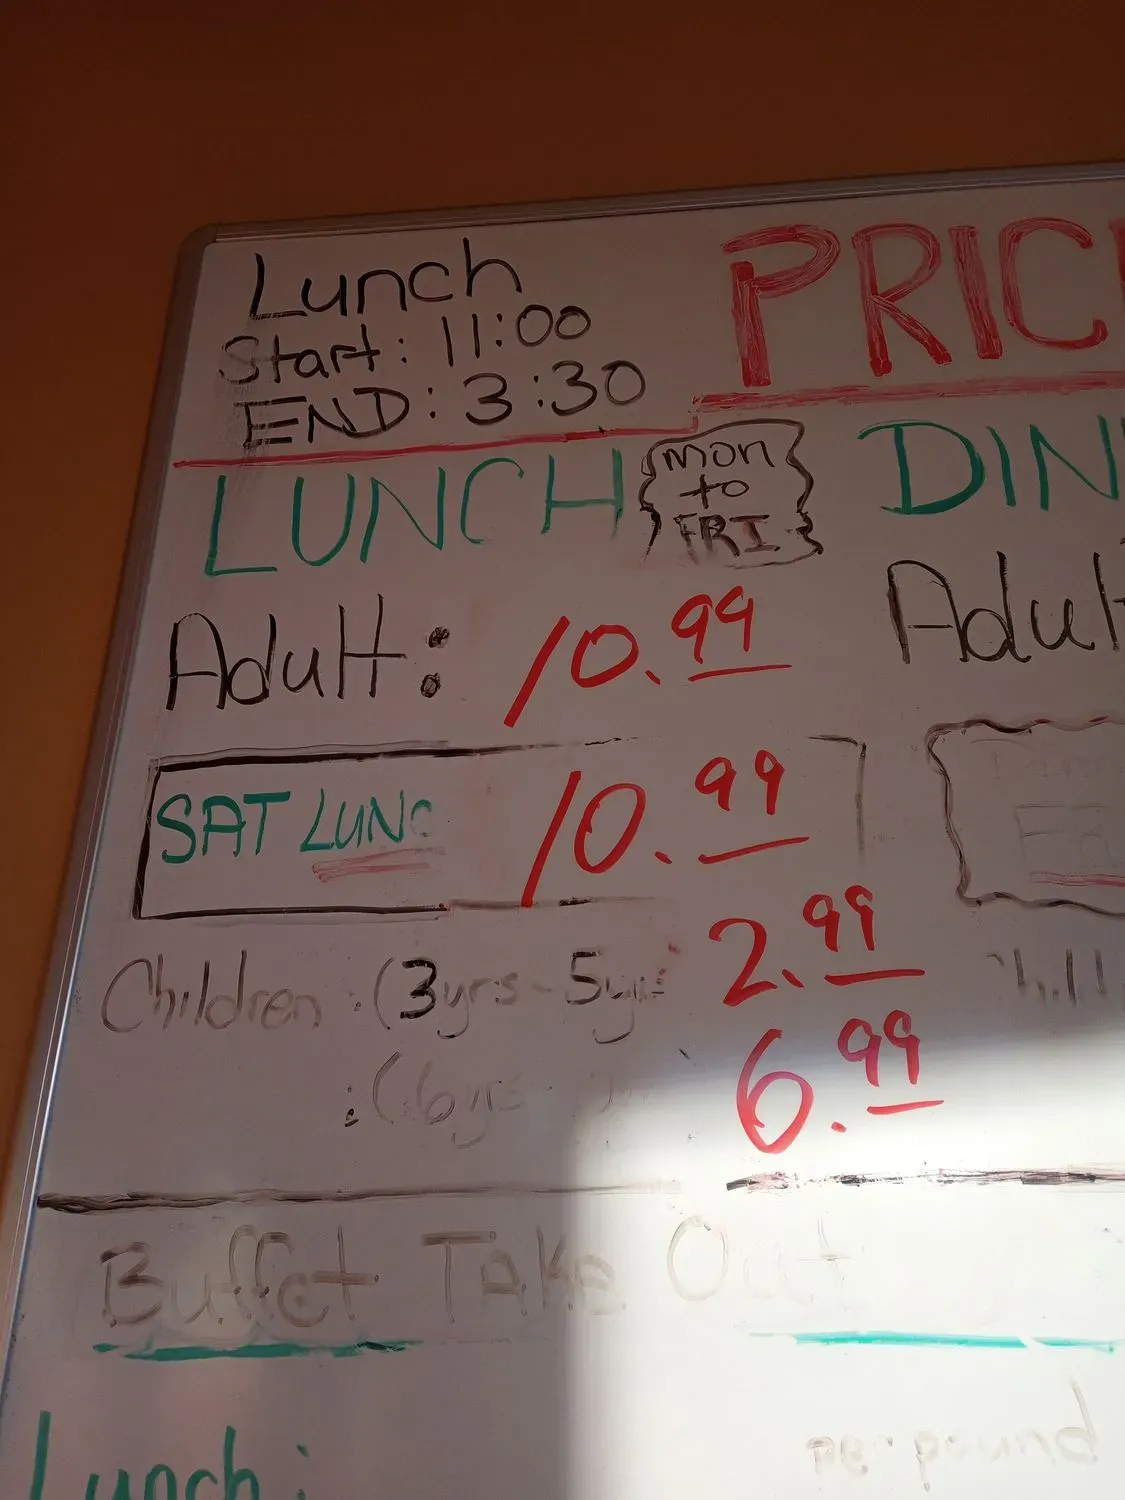 Lunch
Start: 11:00
END: 3:30
PRIC
LUNCH
mon
to
FRI
Adult: 10.99
SAT LUNC 10.99
Children: (3yrs-5yrs 2.99
:(6yrs- 6.99
Buffet Take Out
Lunch:
DIN
Adult